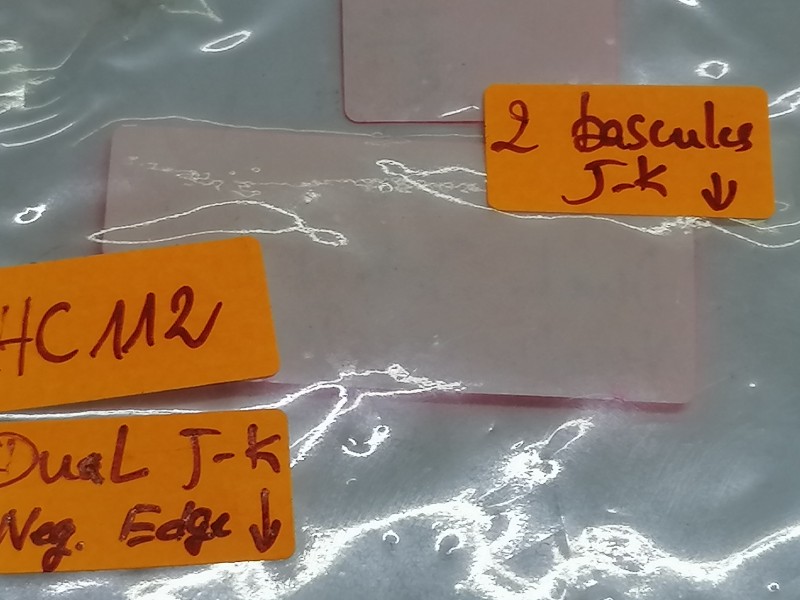 2 bascules
J-K ↓
HC112
Dual J-K
Neg. Edge ↓